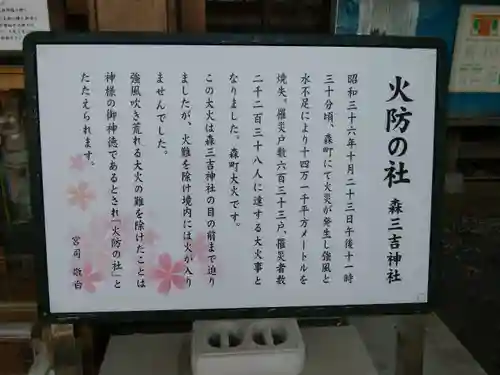 火防の社 森三吉神社
昭和三十六年十月二十三日午後十一時
三十分頃、森町にて火災が発生し強風と
水不足により十四万一千平方メートルを
焼失。罹災戸数六百三十三戸、罹災者数
二千二百三十八人に達する大火事と
なりました。森町大火です。
この大火は森三吉神社の目の前まで迫り
ましたが、火難を除け境内には火が入り
ませんでした。
強風吹き荒れる大火の難を除けたことは
神様の御神徳であるとされ『火防の社』と
たたえられます。
宮司 敬白